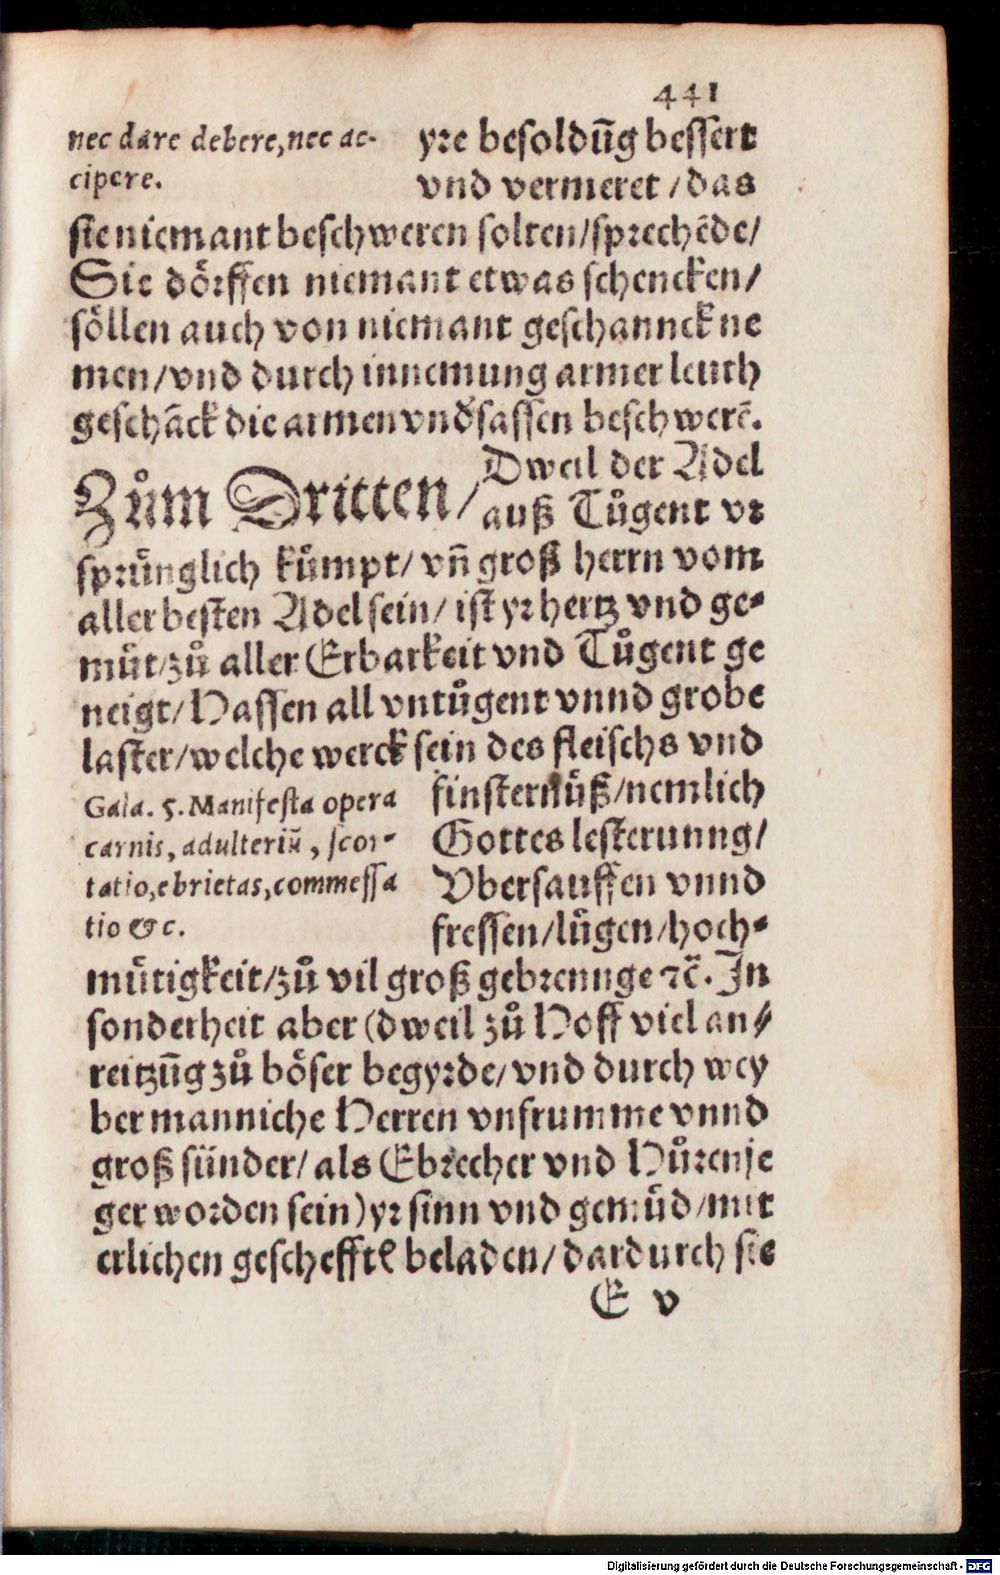 441
nec dare debere, nec ac-
cipere.
yre besoldūg bessert
vnd vermeret / das
sie niemant beschweren solten / sprechēde /
Sie dörffen niemant etwas schencken /
söllen auch von niemant geschannck ne
men / vnd durch innemung armer leuth
geschāck die armen vndersassen beschwerē.
Zům Dritten / Dweil der Adel
auß Tůgent vr
sprünglich kümpt / vñ groß herrn vom
aller besten Adel sein / ist yr hertz vnd ge-
müt / zů aller Erbarkeit vnd Tůgent ge
neigt / Hassen all vntůgent vnnd grobe
laster / welche werck sein des fleischs vnd
Gala. 5. Manifesta opera
carnis, adulteriū, scor-
tatio, ebrietas, commessa
tio &c.
finsternüß / nemlich
Gottes lesterunng /
Vbersauffen vnnd
fressen / lügen / hoch-
mütigkeit / zů vil groß gebrennge ꝛc̄. In
sonderheit aber (dweil zů Hoff viel an-
reitzūg zů böser begyrde / vnd durch wey
ber manniche Herren vnfrumme vnnd
groß sünder / als Ebrecher vnd Hůrenje
ger worden sein) yr sinn vnd gemüd / mit
erlichen gescheffte beladen / dardurch sie
E v
Digitalisierung gefördert durch die Deutsche Forschungsgemeinschaft - DFG